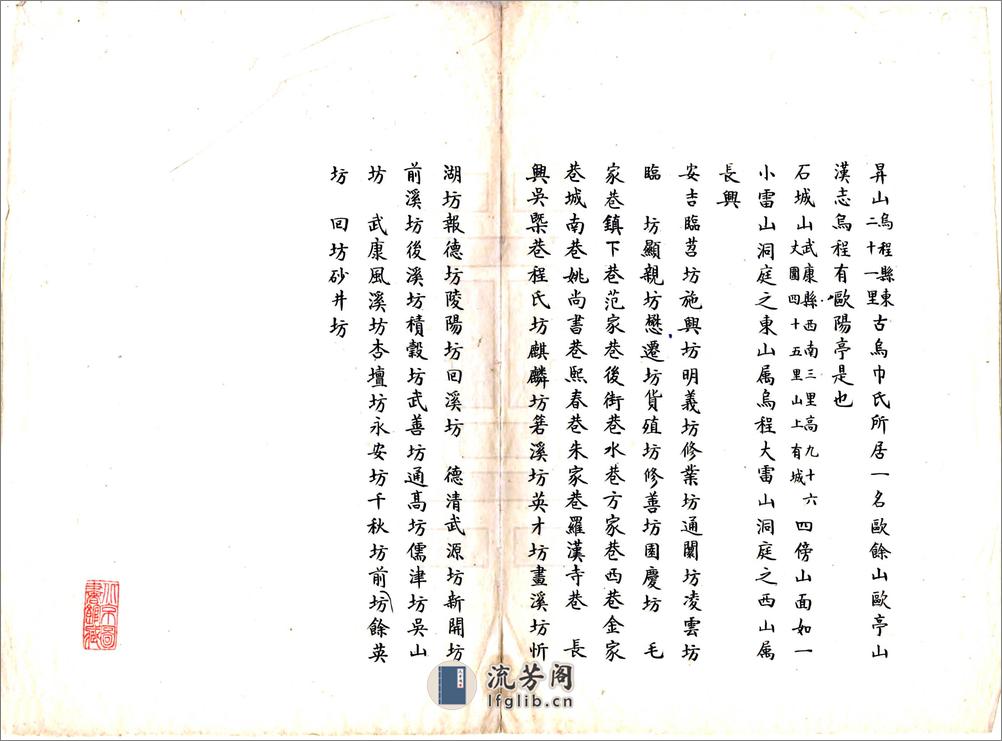 昇山烏程縣東二十一里古烏巾氏所居一名歐餘山歐亭山
漢志烏程有歐陽亭是也
石城山武康縣西南三里高九十六大圍四十五里山上有城四傍山面如一
小雷山洞庭之東山属烏程大雷山洞庭之西山属
長興
安吉臨苕坊施興坊明義坊修業坊通闤坊凌雲坊
臨　坊顯親坊懋遷坊貨殖坊修善坊國慶坊　毛
家巷鎮下巷范家巷後街巷水巷方家巷西巷金家
巷城南巷姚尚書巷熙春巷朱家巷羅漢寺巷　長
興吳槩巷程氏坊麒麟坊箬溪坊英才坊畫溪坊忻
湖坊報德坊陵陽坊回溪坊　德清武源坊新開坊
前溪坊後溪坊積穀坊武善坊通髙坊儒津坊吳山
坊　武康風溪坊杏壇坊永安坊千秋坊前坊餘英
坊　回坊砂井坊
北京圖書館藏
流芳阁
lfglib.cn